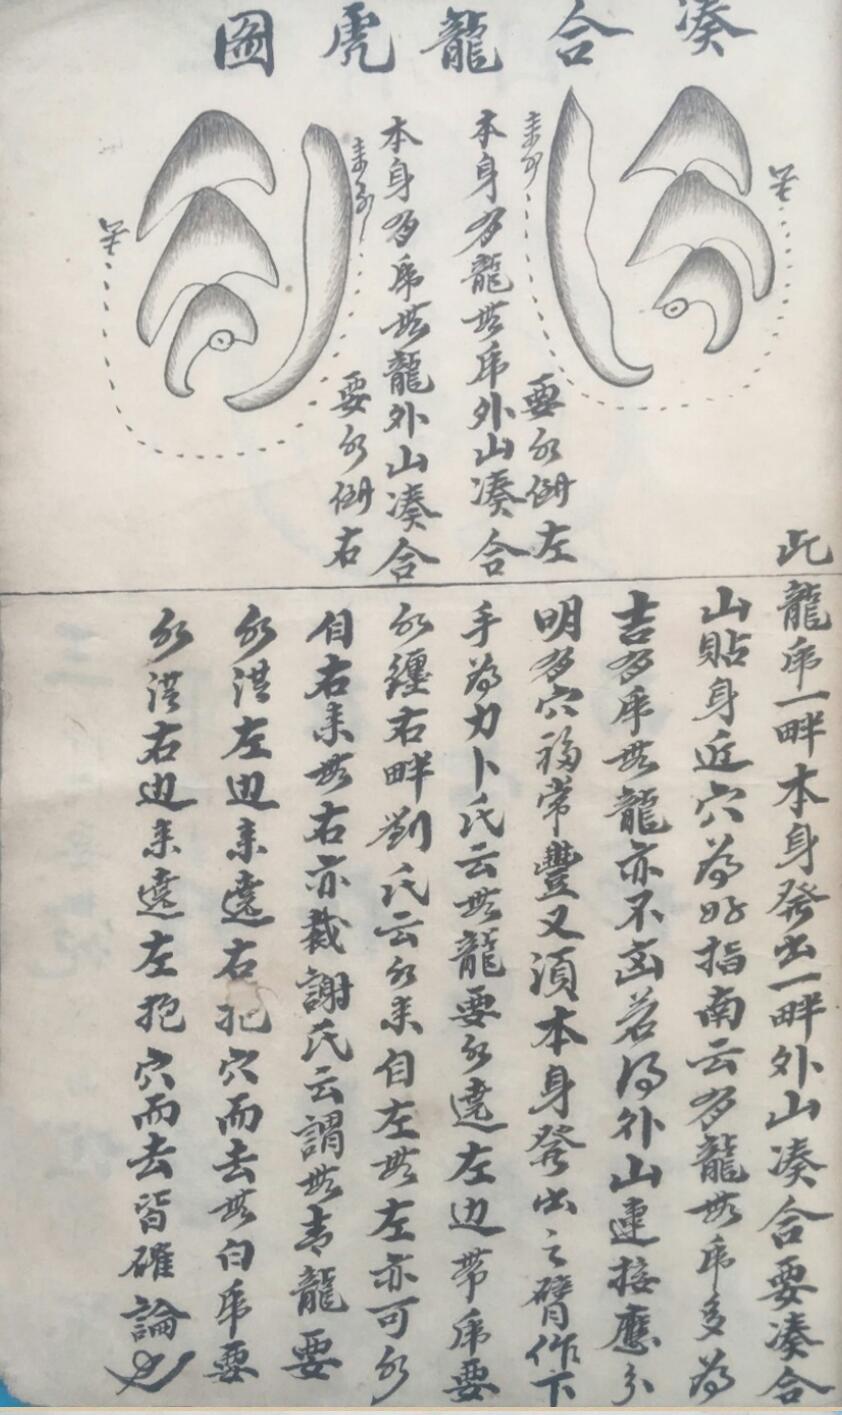 凑合龍虎圖
本身有龍無虎外山凑合
要水倒左
來水
本身有虎無龍外山凑合
要水倒右
來水
此龍虎一畔本身發出一畔外山凑合要凑合
山貼身近穴為好指南云有龍無虎多為
吉有虎無龍亦不凶若得外山連接應分
明有穴福常豐又須本身發出之臂作下
手為力卜氏云無龍要水遶左边帶虎要
水纏右畔劉氏云水來自左無左亦可水
自右來無右亦裁謝氏云謂無青龍要
水從左边來遶右抱穴而去無白虎要
水從右边來遶左抱穴而去皆確論也